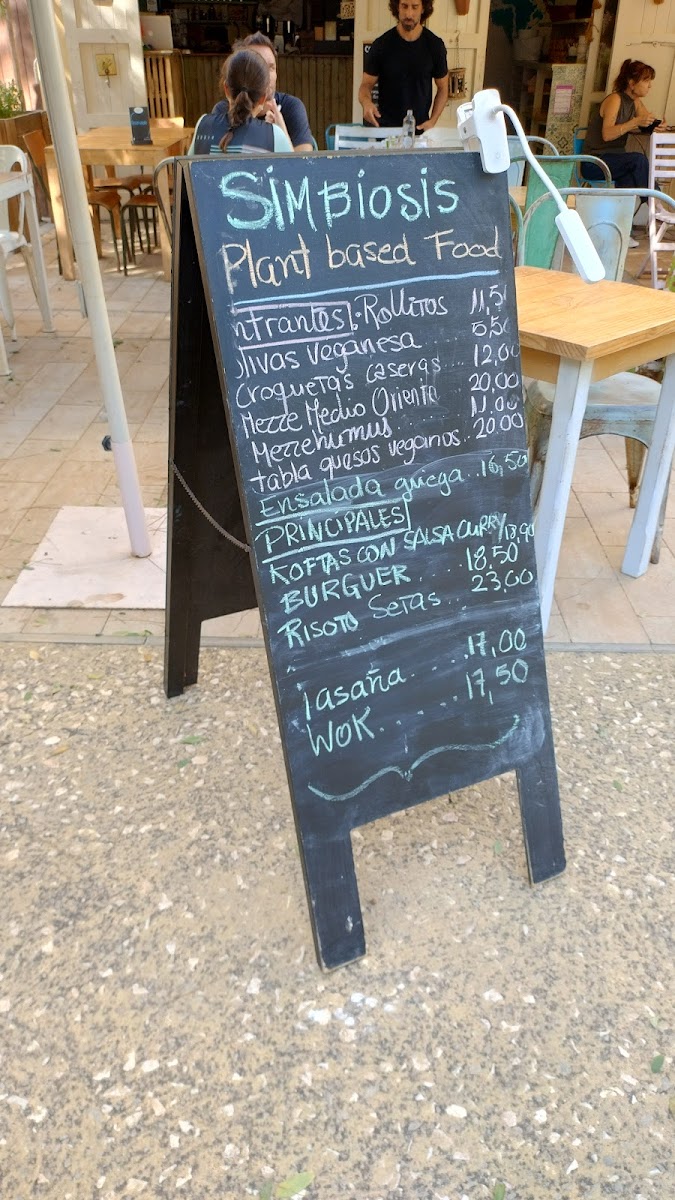 SIMBIOSIS
Plant based Food
nTrantes: Rollitos 11,50
Olivas veganesa 5,50
Croquetas caseras... 12,00
Mezze Medio Oriente 20,00
Mezzehumus 11.00
tabla quesos veganos.. 20.00
Ensalada griega.. 16,50
PRINCIPALES
KOFTAS CON SALSA CURRY/18,90
BURGUER.... 18.50
Risoto Setas.. 23,00
lasaña.... .17,00
WOK...... 17,50